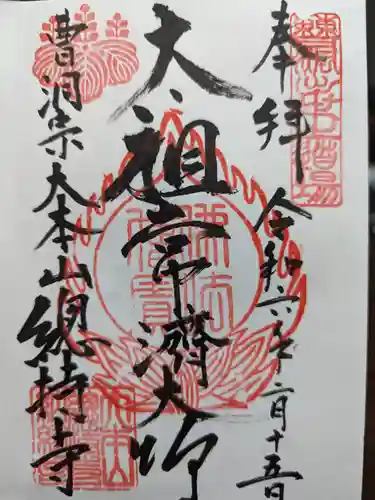 奉拝
令和六年二月十五日
太祖常濟大師
曹洞宗大本山總持寺